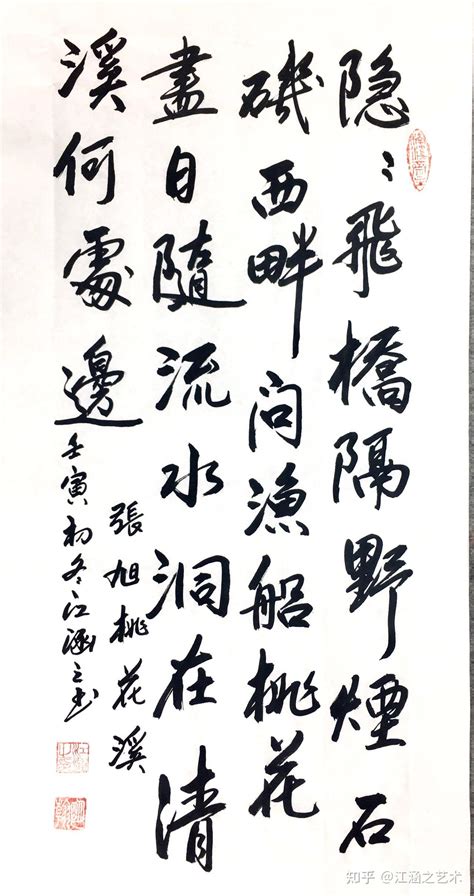 隐〻飛橋隔野煙石
磯西畔问漁船桃花
盡日隨流水洞在清
溪何處邊
張旭桃花溪
壬寅初冬江涵之书
知乎 @江涵之艺术